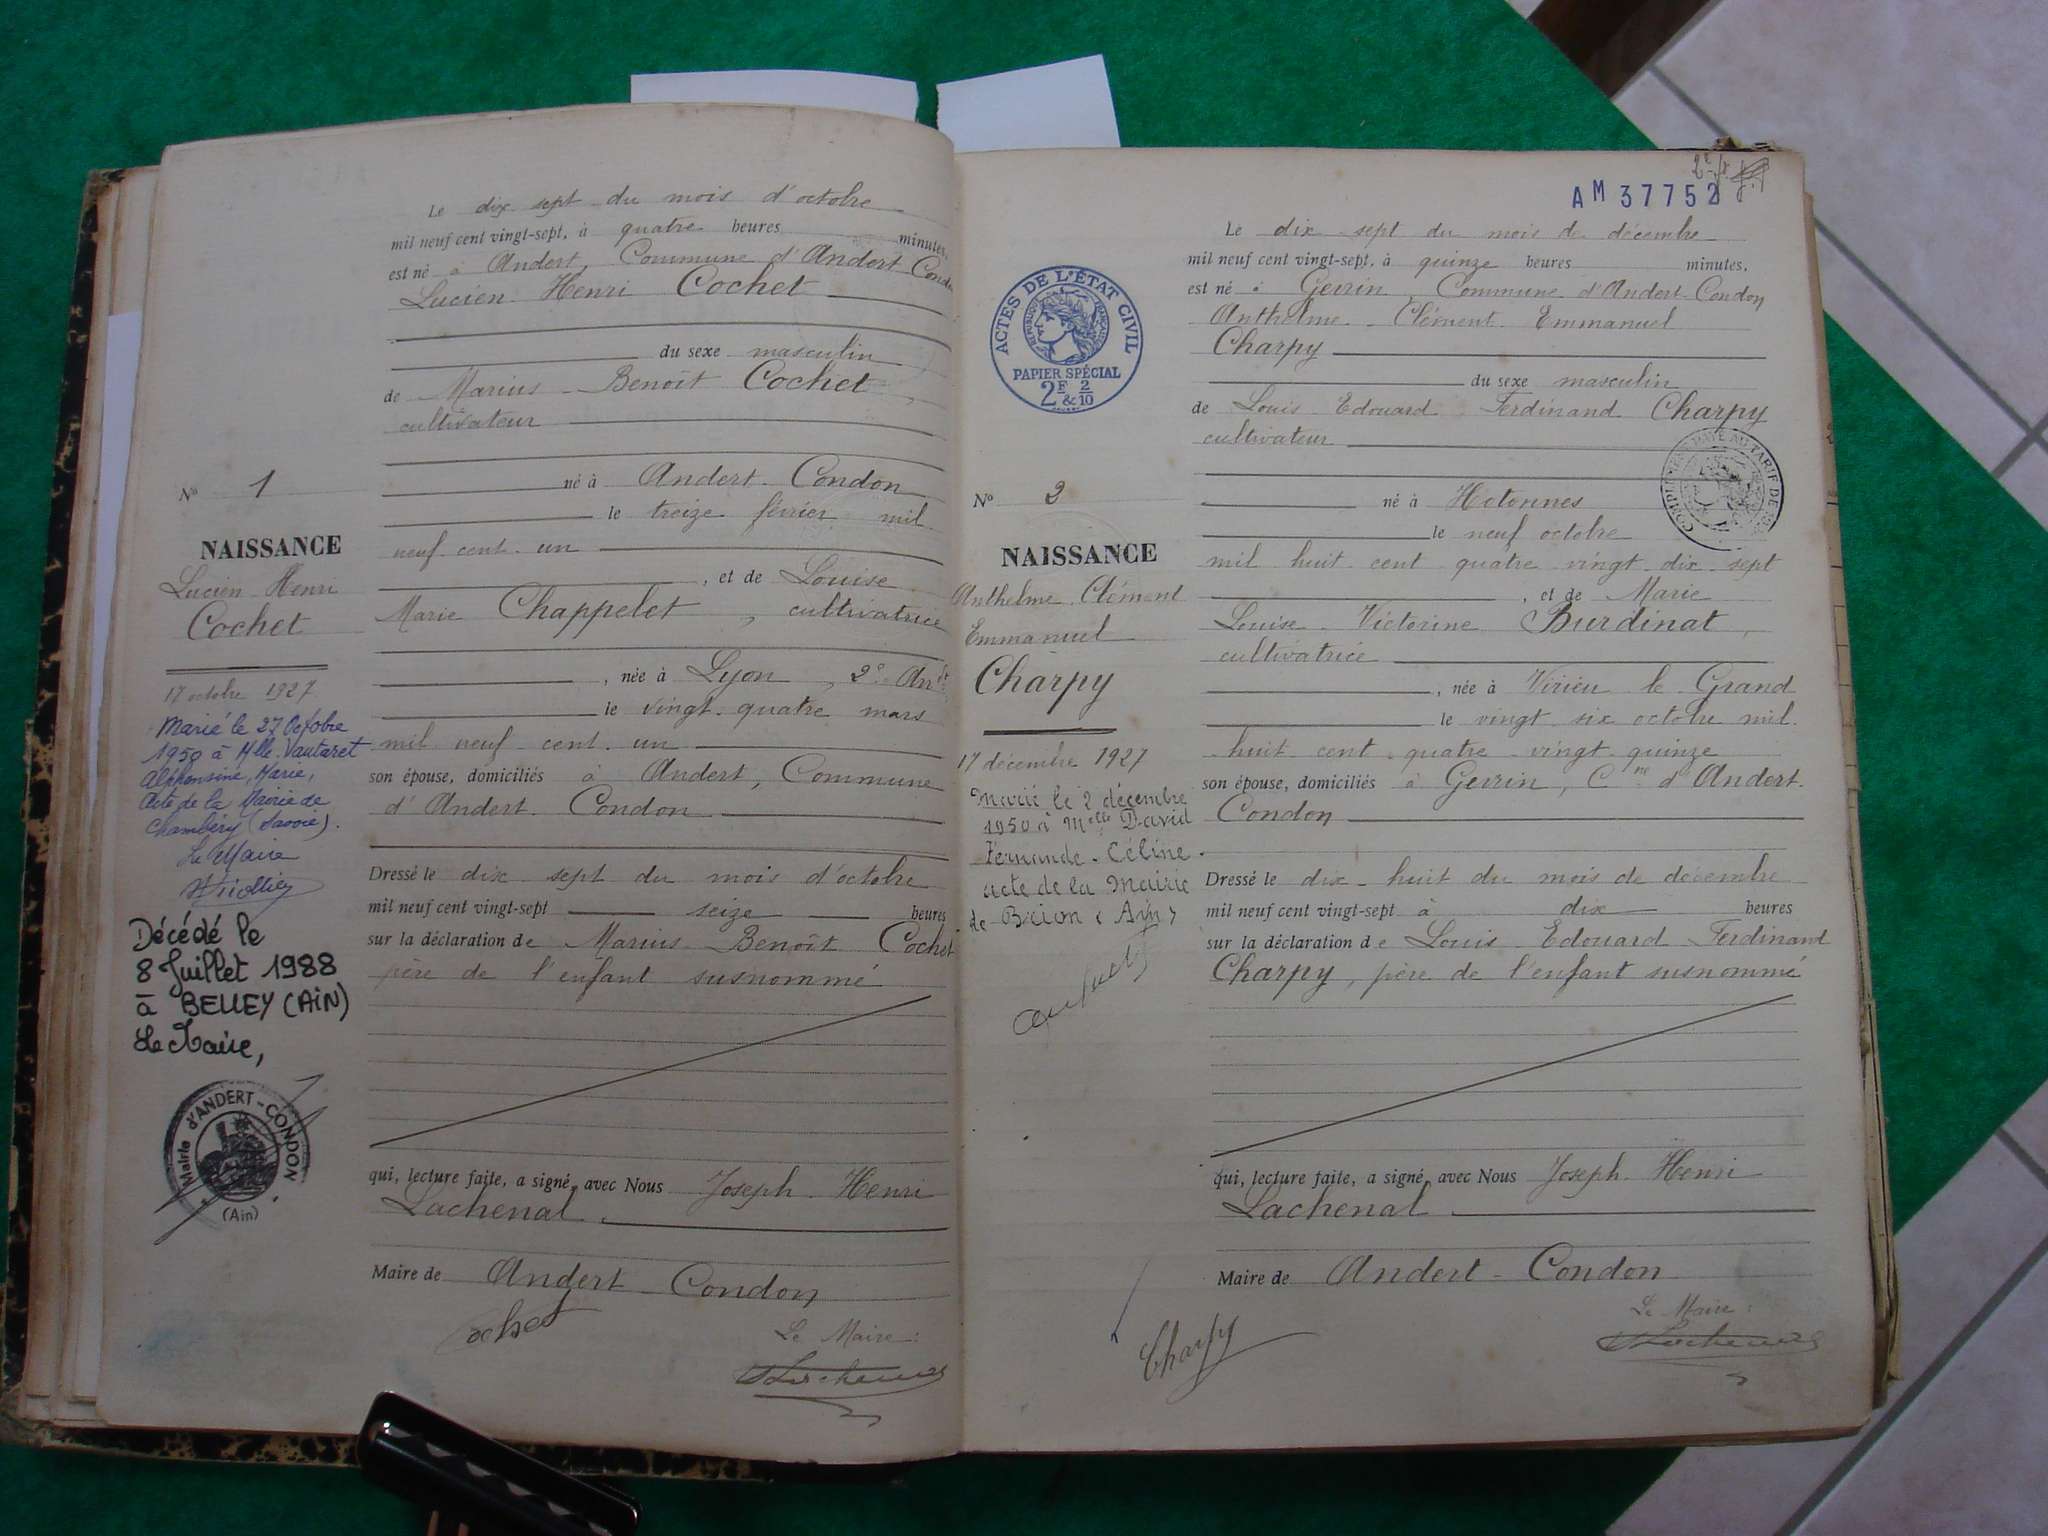 Le dix sept du mois d'octobre
mil neuf cent vingt-sept, à quatre heures minutes,
est né à Andert, Commune d'Andert Condon
Lucien Henri Cochet
du sexe masculin
de Marius Benoît Cochet,
cultivateur
né à Andert-Condon
le treize février mil
neuf cent un
, et de Louise
Marie Chappelet, cultivatrice
, née à Lyon, 2e Ardt
le vingt-quatre mars
mil neuf cent un
son épouse, domiciliés à Andert, Commune
d'Andert-Condon
Dressé le dix sept du mois d'octobre
mil neuf cent vingt-sept seize heures
sur la déclaration de Marius Benoît Cochet
père de l'enfant susnommé
qui, lecture faite, a signé avec Nous Joseph Henri
Lachenal.
Maire de Andert-Condon
Cochet
Le Maire:
Lachenal
No 1
NAISSANCE
Lucien Henri
Cochet
17 octobre 1927
Marié le 27 Octobre
1950 à Mlle Vautaret
Alphonsine, Marie,
Acte de la Mairie de
Chambéry (Savoie).
Le Maire
Décédé le
8 Juillet 1988
à BELLEY (AIN)
Le Maire,
Mairie d'ANDERT-CONDON
(Ain)
AM 37752
Le dix sept du mois de décembre
mil neuf cent vingt-sept, à quinze heures minutes,
est né à Gevrin, Commune d'Andert-Condon
Anthelme Clément Emmanuel
Charpy
du sexe masculin
de Louis Edouard Ferdinand Charpy
cultivateur
né à Hotonnes
le neuf octobre
mil huit cent quatre vingt dix sept
, et de Marie
Louise Victorine Burdinat,
cultivatrice
, née à Virieu le Grand
le vingt six octobre mil
huit cent quatre vingt quinze
son épouse, domiciliés à Gevrin, Cne d'Andert-
Condon
Dressé le dix-huit du mois de décembre
mil neuf cent vingt-sept à dix heures
sur la déclaration de Louis Edouard Ferdinand
Charpy, père de l'enfant susnommé
qui, lecture faite, a signé avec Nous Joseph Henri
Lachenal
Maire de Andert-Condon
Charpy
Le Maire:
Lachenal
ACTES DE L'ÉTAT CIVIL
RÉPUBLIQUE FRANÇAISE
PAPIER SPÉCIAL
2F & 2/10
No 2
NAISSANCE
Anthelme Clément
Emmanuel
Charpy
17 décembre 1927
Marié le 2 décembre
1950 à Melle David
Fernande-Céline.
acte de la Mairie
de Brion (Ain)